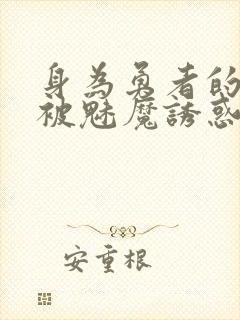 身為勇者的
被魅魔誘惑
安重根